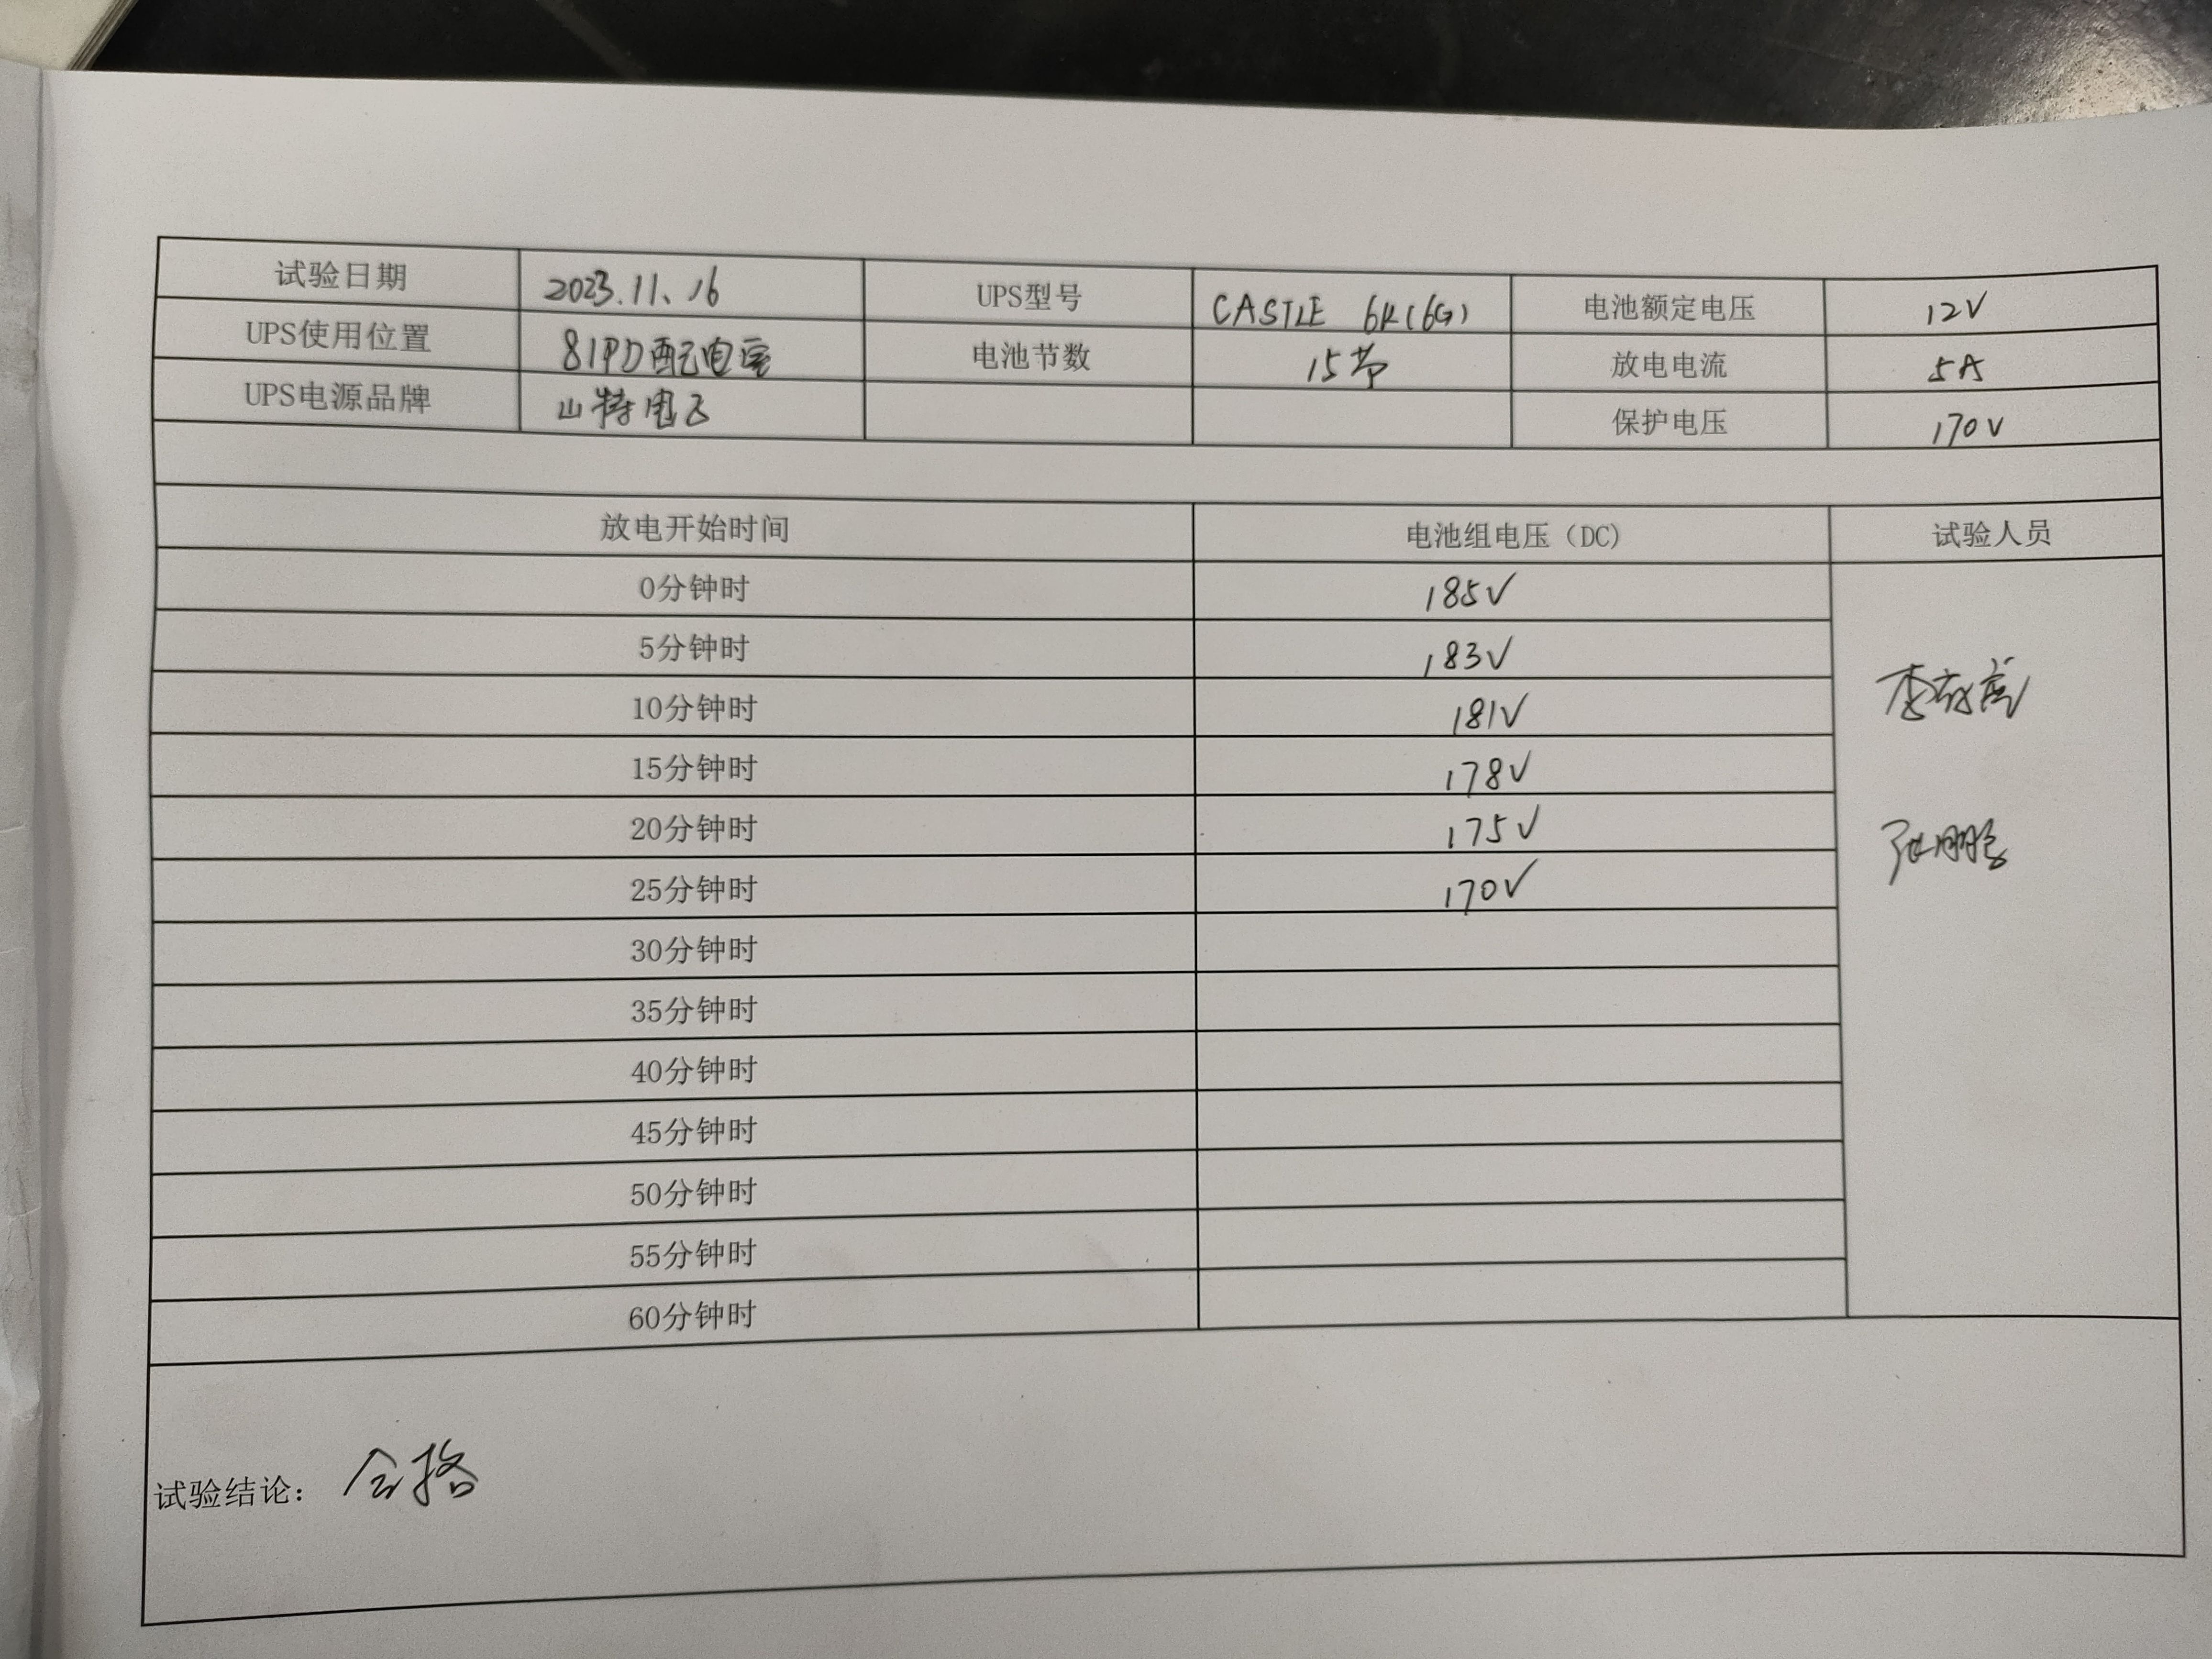 试验日期 2023.11.16 UPS型号 CASTLE 6K(6G) 电池额定电压 12V
UPS使用位置 81PD配电室 电池节数 15节 放电电流 5A
UPS电源品牌 山特电子 保护电压 170V
放电开始时间 电池组电压（DC) 试验人员
0分钟时 185V
5分钟时 183V
10分钟时 181V
15分钟时 178V
20分钟时 175V
25分钟时 170V
30分钟时
35分钟时
40分钟时
45分钟时
50分钟时
55分钟时
60分钟时
试验结论： 合格